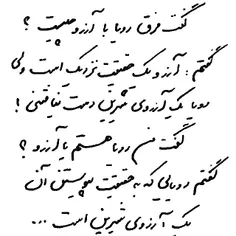 گفت فرق رویا با آرزو چیست ؟
گفتم : آرزو یک حقیقت نزدیک است ولی
رویا یک آرزوی شیرین دست نیافتنی !
گفت من رویا هستم یا آرزو ؟
گفتم رویایی که به حقیقت پیوستن آن
یک آرزوی شیرین است ...